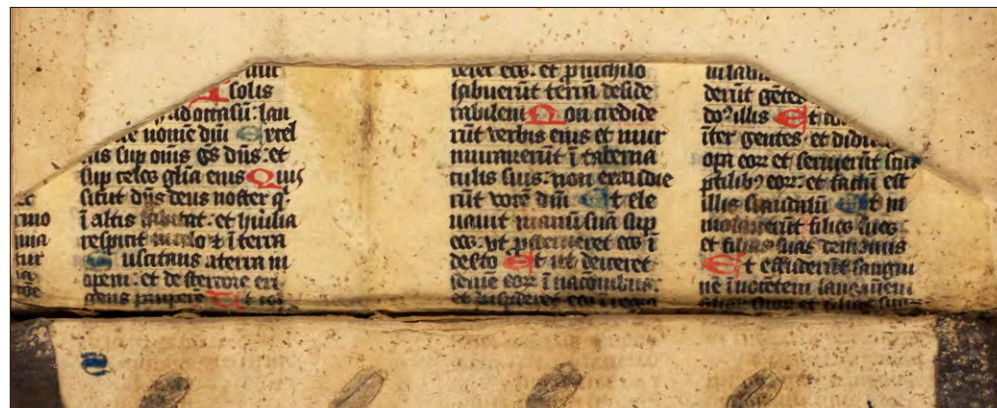 solis
ad occasū: lau
nomē dn̄i Excel
sus sup om̄s gs dn̄s: et
sup celos gl̄ia eius Quis
sicut dn̄s deus noster q̇
ī altis habitat: et hūilia
respicit in celo & ī terra
Suscitans a terra in
opem: et de stercore eri
gens paupere Ut
eos: et p nichilo
habuerūt terrā deside
rabilem Non credide
rūt verbis eius et mur
murauerūt ī taberna
culis suis: non exaudie
rūt vocē dn̄i Et ele
uauit manū suā sup
eos: vt psterneret eos ī
deserto Et ut deiceret
semē eoꝝ ī nacionibus:
et dispderet eos ī regio
derūt gētes
do᷒ illis Et
īter gentes: et didic
opa eoꝝ et seruierūt scul
ptilibꝰ eoꝝ: et factū est
illis scandalū Et im
molauerūt filios suos
et filias suas demoniis
Et effuderūt sangui
nē īnocētem sanguinem
filioꝝ suoꝝ et filiaꝝ suaꝝ